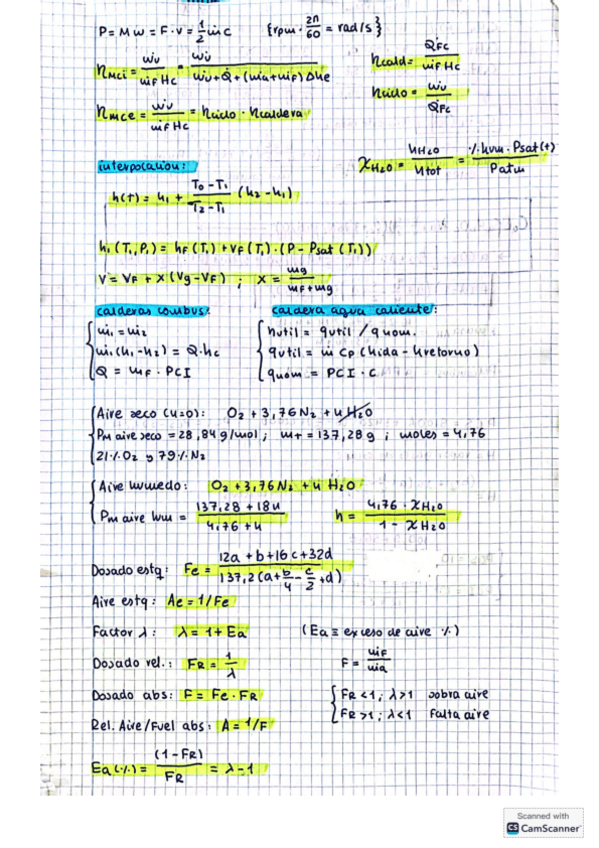 P = M ω = F · v = 1/2 ṁc {rpm · 2π/60 = rad/s}
ηMCI = Ẇu / ṁF Hc = Ẇu / Ẇu + Q̇ + (ṁa + ṁF) Δhe
ηcald = Q̇FC / ṁF Hc
ηMCE = Ẇu / ṁF Hc = ηciclo · ηcaldera
ηciclo = Ẇu / Q̇FC
interpolación:
XH2O = nH2O / ntot = % hum · Psat(t) / Patm
h(T) = h1 + T0 - T1 / T2 - T1 (h2 - h1)
h1 (T1, P1) = hF (T1) + vF (T1) · (P - Psat (T1))
V = VF + X (Vg - VF) ; X = mg / mF + mg
calderas combus: caldera agua caliente:
ṁ1 = ṁ2
ṁ1 (h1 - h2) = Q · hc
Q = mF · PCI
ηutil = qutil / qnom.
qutil = ṁ Cp (hida - hretorno)
qnom = PCI · C
Aire seco (n=0): O2 + 3,76 N2 + n H2O
Pm aire seco = 28,84 g/mol ; mT = 137,28 g ; moles = 4,76
21% O2 y 79% N2
Aire húmedo: O2 + 3,76 N2 + n H2O
Pm aire hum = 137,28 + 18n / 4,76 + n h = 4,76 · XH2O / 1 - XH2O
Dosado estq: Fe = 12a + b + 16c + 32d / 137,2 (a + b/4 - c/2 + d)
Aire estq: Ae = 1/Fe
Factor λ: λ = 1 + Ea (Ea ≡ exceso de aire %)
Dosado rel.: FR = 1/λ F = ṁF / ṁa
Dosado abs: F = Fe · FR
FR < 1 ; λ > 1 sobra aire
FR > 1 ; λ < 1 falta aire
Rel. Aire/Fuel abs: A = 1/F
Ea (%) = (1 - FR) / FR = λ - 1
Scanned with
CS CamScanner